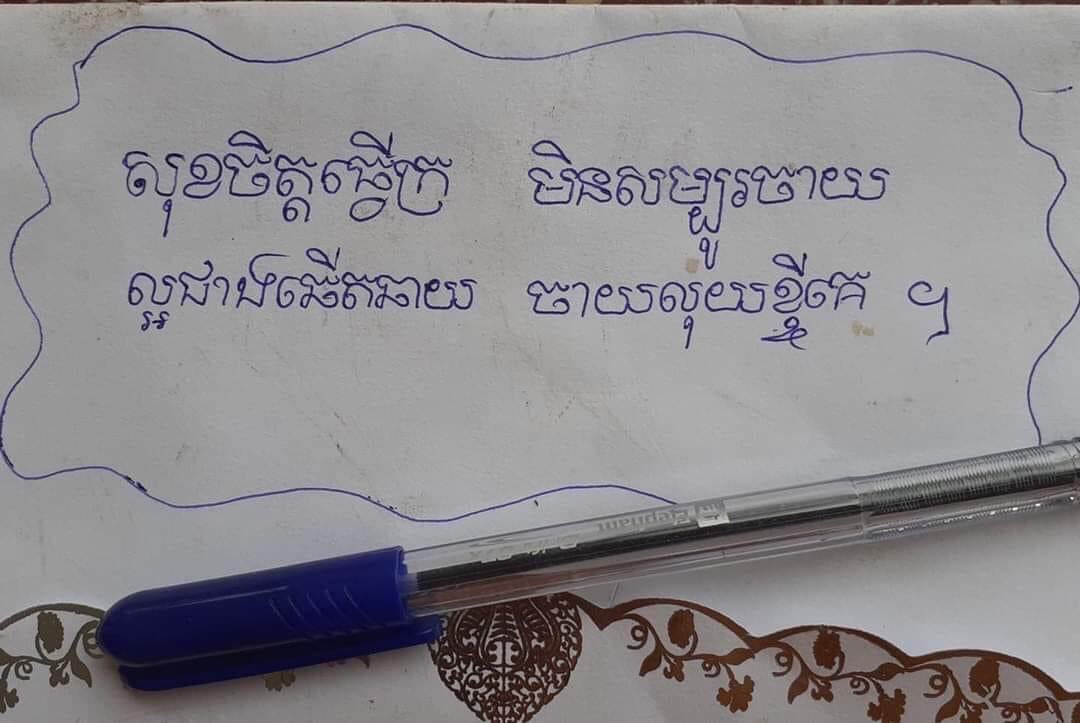 សុខចិត្តធ្វើក្រ មិនសម្បូរចាយ
ល្អជាងឆើតឆាយ ចាយលុយខ្ចីគេ ។
Elephant